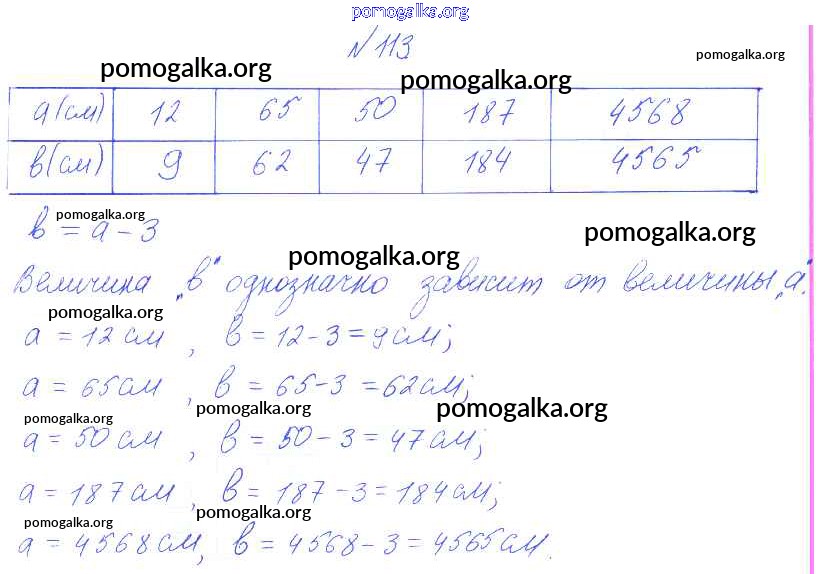 pomogalka.org
№ 113
pomogalka.org
pomogalka.org
pomogalka.org
а(см) 12 65 50 187 4568
в(см) 9 62 47 184 4565
pomogalka.org
в = а - 3
pomogalka.org
pomogalka.org
Величина „в" однозначно зависит от величины „а".
pomogalka.org
а = 12 см , в = 12 - 3 = 9 см;
а = 65 см , в = 65 - 3 = 62 см;
pomogalka.org
pomogalka.org
pomogalka.org
а = 50 см , в = 50 - 3 = 47 см;
а = 187 см , в = 187 - 3 = 184 см;
pomogalka.org
pomogalka.org
а = 4568 см, в = 4568 - 3 = 4565 см.